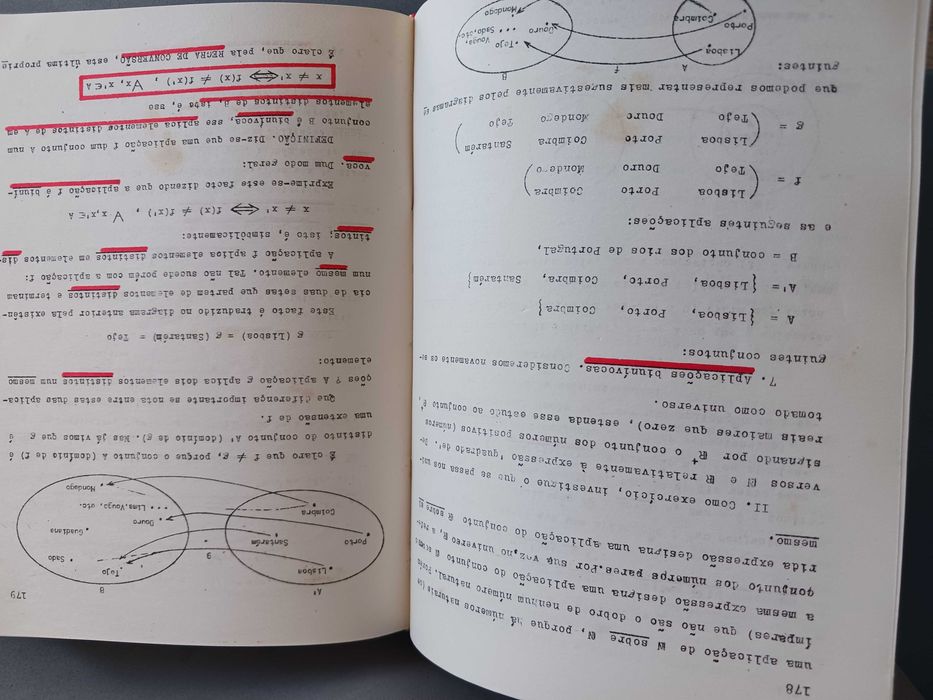 178
uma aplicação de N sobre N, porque há números naturais (os
ímpares) que não são o dobro de nenhum número natural. Porém
a mesma expressão designa uma aplicação do conjunto N sobre o
conjunto dos números pares. Por sua vez, no universo R, a refe-
rida expressão designa uma aplicação do conjunto R sobre si
mesmo.
II. Como exercício, investigue o que se passa nos uni-
versos N e R relativamente à expressão 'quadrado de'. De-
signando por R⁺ o conjunto dos números positivos (números
reais maiores que zero), estenda esse estudo ao conjunto R⁺,
tomado como universo.
7. Aplicações biunívocas. Consideremos novamente os se-
guintes conjuntos:
A = {Lisboa, Porto, Coimbra}
A'= {Lisboa, Porto, Coimbra, Santarém}
B = conjunto dos rios de Portugal,
e as seguintes aplicações:
f = (Lisboa Porto Coimbra)
(Tejo Douro Mondego)
g = (Lisboa Porto Coimbra Santarém)
(Tejo Douro Mondego Tejo)
que podemos representar mais sugestivamente pelos diagramas se-
guintes:
A f B
Lisboa
Porto
Coimbra
Tejo
Vouga,
Sado, etc.
Douro
Mondego
179
A' g B
Lisboa
Porto
Santarém
Coimbra
Tejo
Sado
Guadiana
Douro
... Lima, Vouga, etc.
Mondego
É claro que f ≠ g, porque o conjunto A (domínio de f) é
distinto do conjunto A' (domínio de g). Mas já vimos que g é
uma extensão de f.
Que diferença importante se nota entre estas duas aplica-
ções ? A aplicação g aplica dois elementos distintos num mesmo
elemento:
g (Lisboa) = g (Santarém) = Tejo
Este facto é traduzido no diagrama anterior pela existên-
cia de duas setas que partem de elementos distintos e terminam
num mesmo elemento. Tal não sucede porém com a aplicação f:
A aplicação f aplica elementos distintos em elementos dis-
tintos; isto é, simbòlicamente:
x ≠ x' ⟺ f(x) ≠ f(x') , ∀ x,x'∈A
Exprime-se este facto dizendo que a aplicação f é biuní-
voca. Dum modo geral:
DEFINIÇÃO. Diz-se que uma aplicação f dum conjunto A num
conjunto B é biunívoca, sse aplica elementos distintos de A em
elementos distintos de B, isto é, sse
x ≠ x' ⟺ f(x) ≠ f(x') , ∀x, x'∈A
É claro que, pela REGRA DE CONVERSÃO, esta última proprie